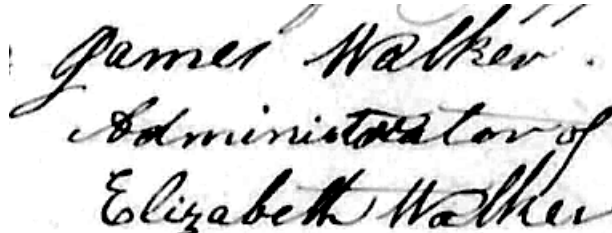 James Walker.
Administrator of
Elizabeth Walker